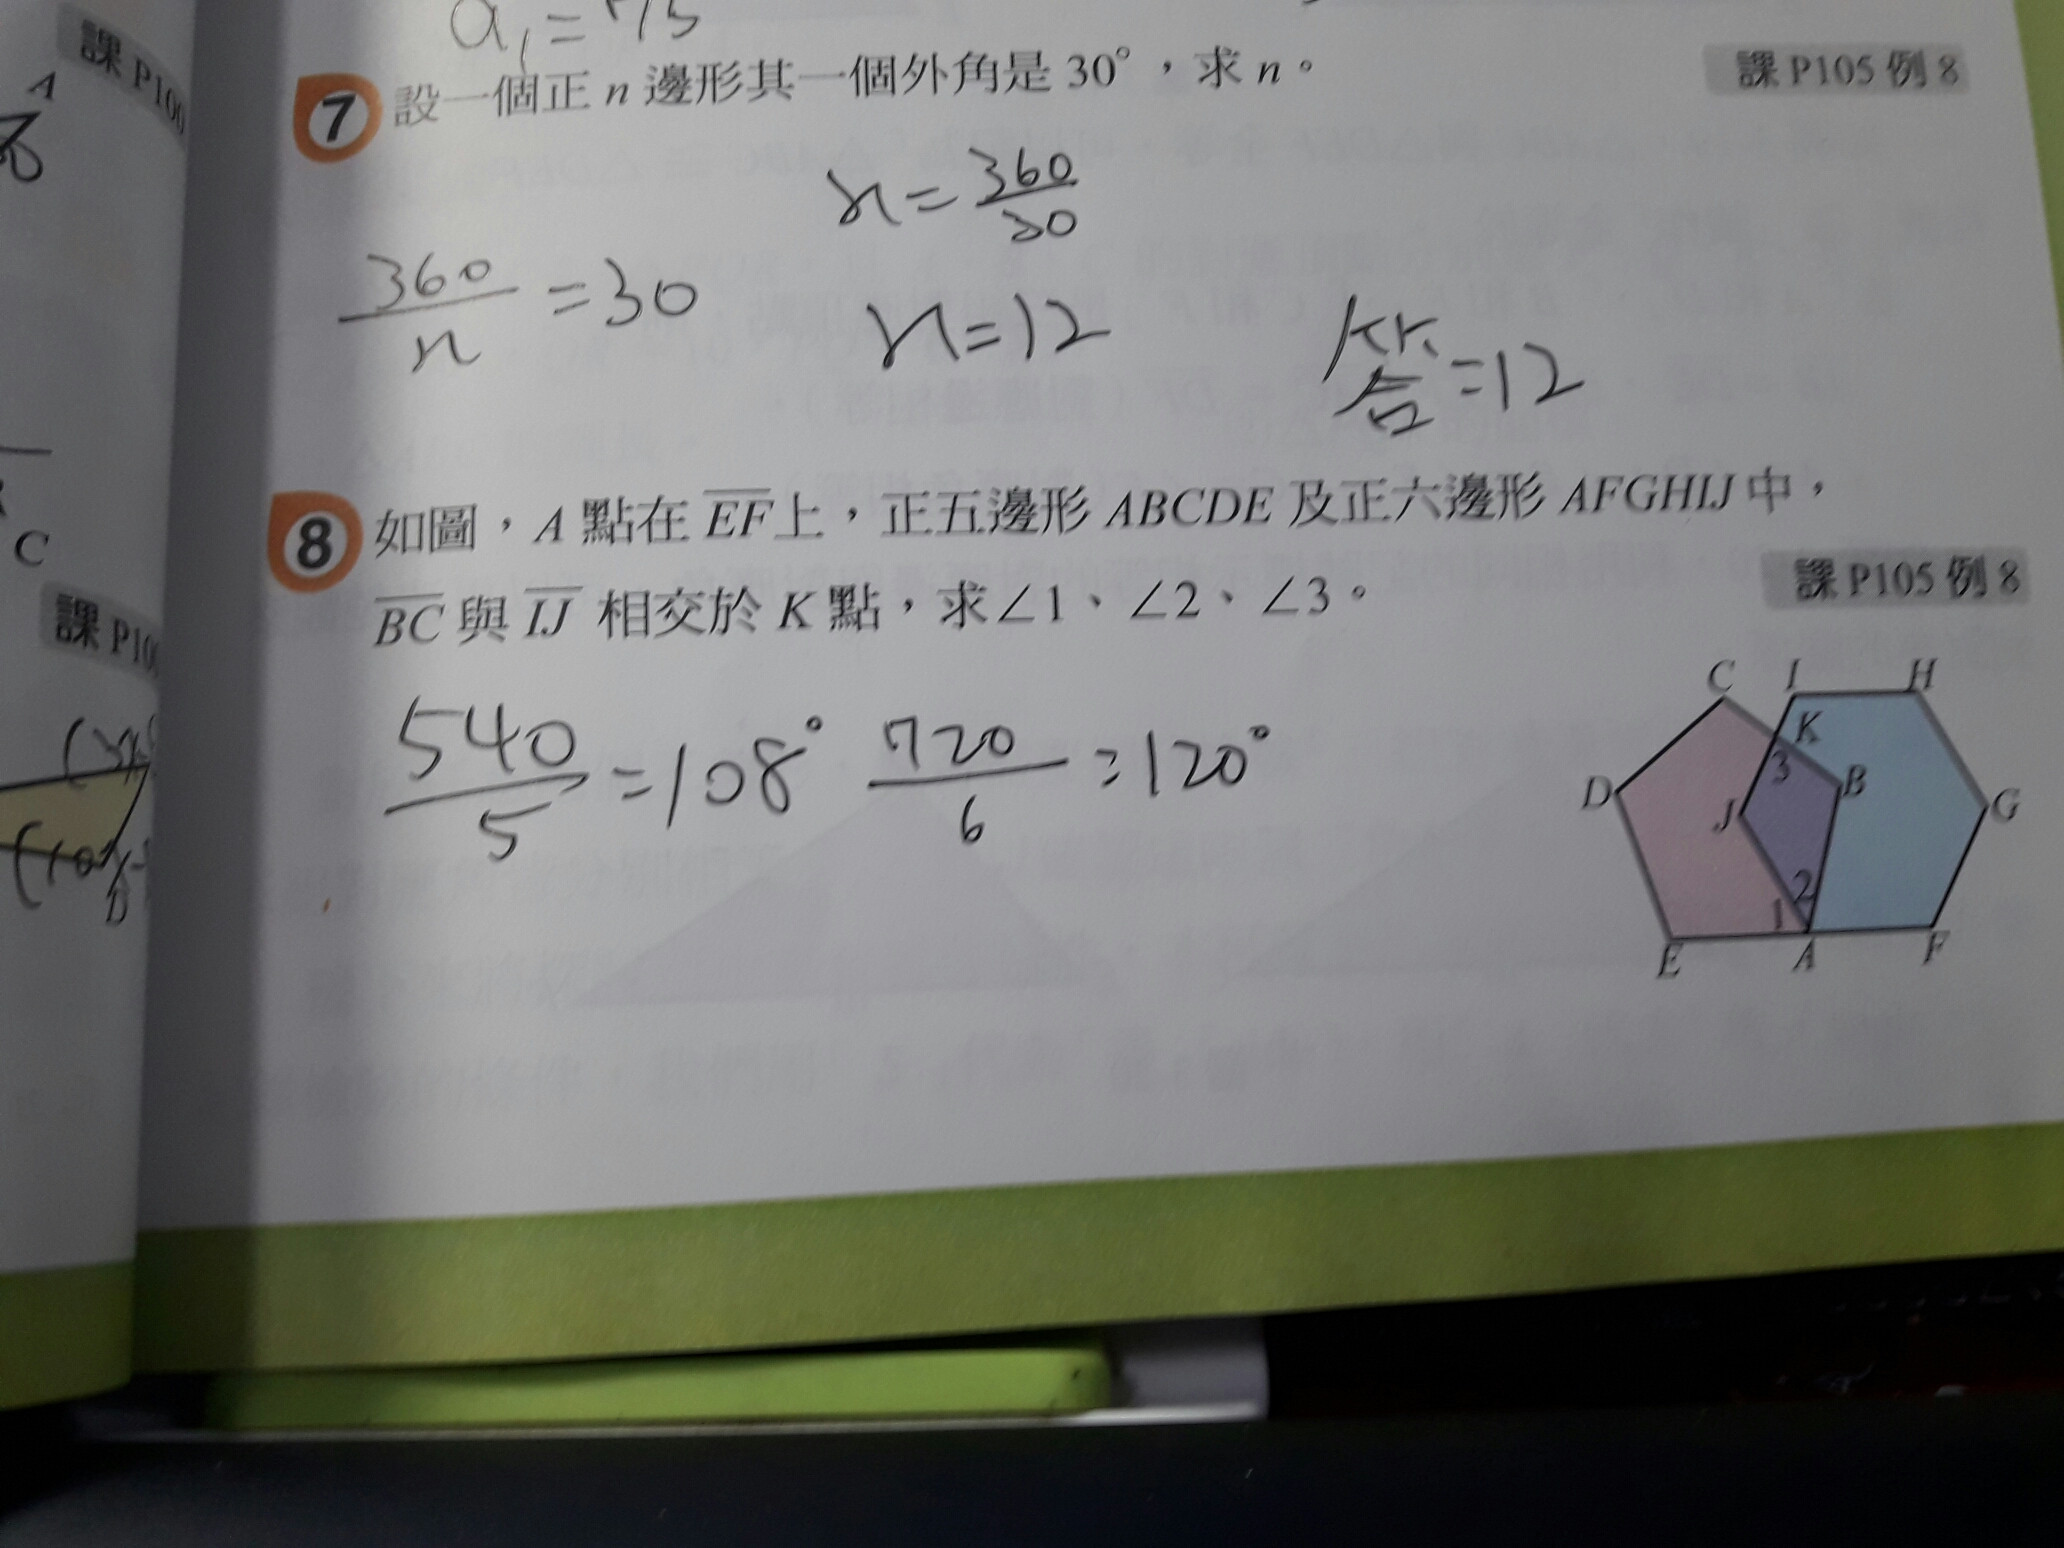 a₁=75
課 P100
A
7 設一個正 n 邊形其一個外角是 30°，求 n。
課 P105 例 8
n=360/30
360/n=30
n=12
答=12
C
8 如圖，A 點在 EF上，正五邊形 ABCDE 及正六邊形 AFGHIJ 中，
課 P105 例 8
BC 與 IJ 相交於 K 點，求∠1、∠2、∠3。
課 P10
540/5=108° 720/6=120°
C I H
K
3
D B G
J
2
1
E A F
D